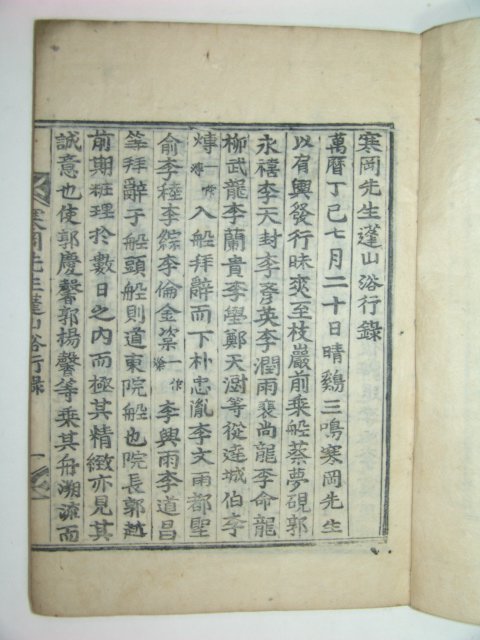 寒岡先生蓬山浴行錄
萬曆丁巳七月二十日晴鷄三鳴寒岡先生
以有興發行昧爽至枝巖前乘船蔡夢硯郭
永禧李天封李彦英李潤雨裵尙龍李命龍
柳武龍李蘭貴李壆鄭天澍等從達城伯李
煿一作入船拜辭而下朴忠胤李文雨都聖
兪李𡊠李綜李倫金㳰一作李興雨李道昌
等拜辭于船頭船則道東院船也院長郭赾
前期粧理於數日之內而極其精緻亦見其
誠意也使郭慶馨郭揚馨等乘其舟溯流而
寒岡先生蓬山浴行錄 一